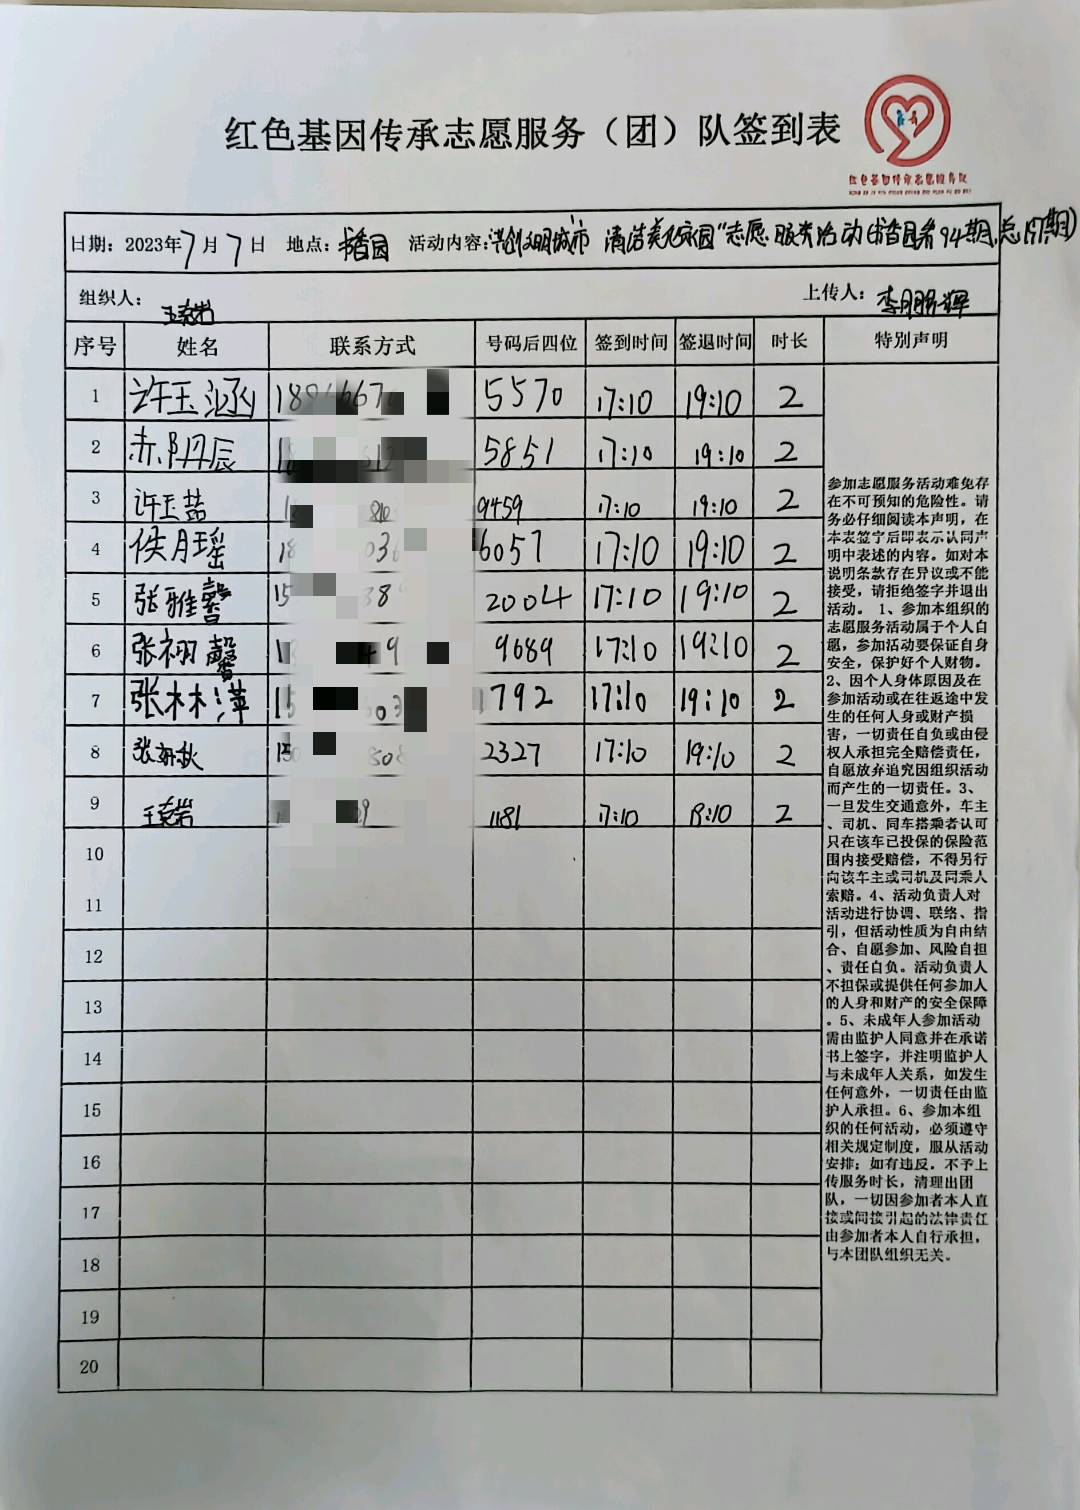 红色基因传承志愿服务（团）队签到表
红色基因传承志愿服务队
日期：2023年7月7日 地点：书香园 活动内容："共创文明城市 清洁美化家园"志愿服务活动(书香园第94期,总 期)
组织人：王克岩 上传人：李鹏辉
序号 姓名 联系方式 号码后四位 签到时间 签退时间 时长 特别声明
1 许玉涵 5570 17:10 19:10 2
2 赤阴丹辰 5851 17:10 19:10 2
3 许玉喆 9459 17:10 19:10 2
4 侯月瑶 6057 17:10 19:10 2
5 张雅馨 2004 17:10 19:10 2
6 张栩馨 9689 17:10 19:10 2
7 张林萍 1792 17:10 19:10 2
8 张秋 2327 17:10 19:10 2
9 王克岩 1181 17:10 19:10 2
10
11
12
13
14
15
16
17
18
19
20
参加志愿服务活动难免存
在不可预知的危险性。请
务必仔细阅读本声明，在
本表签字后即表示认同声
明中表述的内容。如对本
说明条款存在异议或不能
接受，请拒绝签字并退出
活动。 1、参加本组织的
志愿服务活动属于个人自
愿，参加活动要保证自身
安全，保护好个人财物。
2、因个人身体原因及在
参加活动或在往返途中发
生的任何人身或财产损
害，一切责任自负或由侵
权人承担完全赔偿责任，
自愿放弃追究因组织活动
而产生的一切责任。3、
一旦发生交通意外，车主
、司机、同车搭乘者认可
只在该车已投保的保险范
围内接受赔偿，不得另行
向该车主或司机及同乘人
索赔。4、活动负责人对
活动进行协调、联络、指
引，但活动性质为自由结
合、自愿参加、风险自担
、责任自负。活动负责人
不担保或提供任何参加人
的人身和财产的安全保障
。5、未成年人参加活动
需由监护人同意并在承诺
书上签字，并注明监护人
与未成年人关系，如发生
任何意外，一切责任由监
护人承担。6、参加本组
织的任何活动，必须遵守
相关规定制度，服从活动
安排；如有违反，不予上
传服务时长，清理出团
队，一切因参加者本人直
接或间接引起的法律责任
由参加者本人自行承担，
与本团队组织无关。